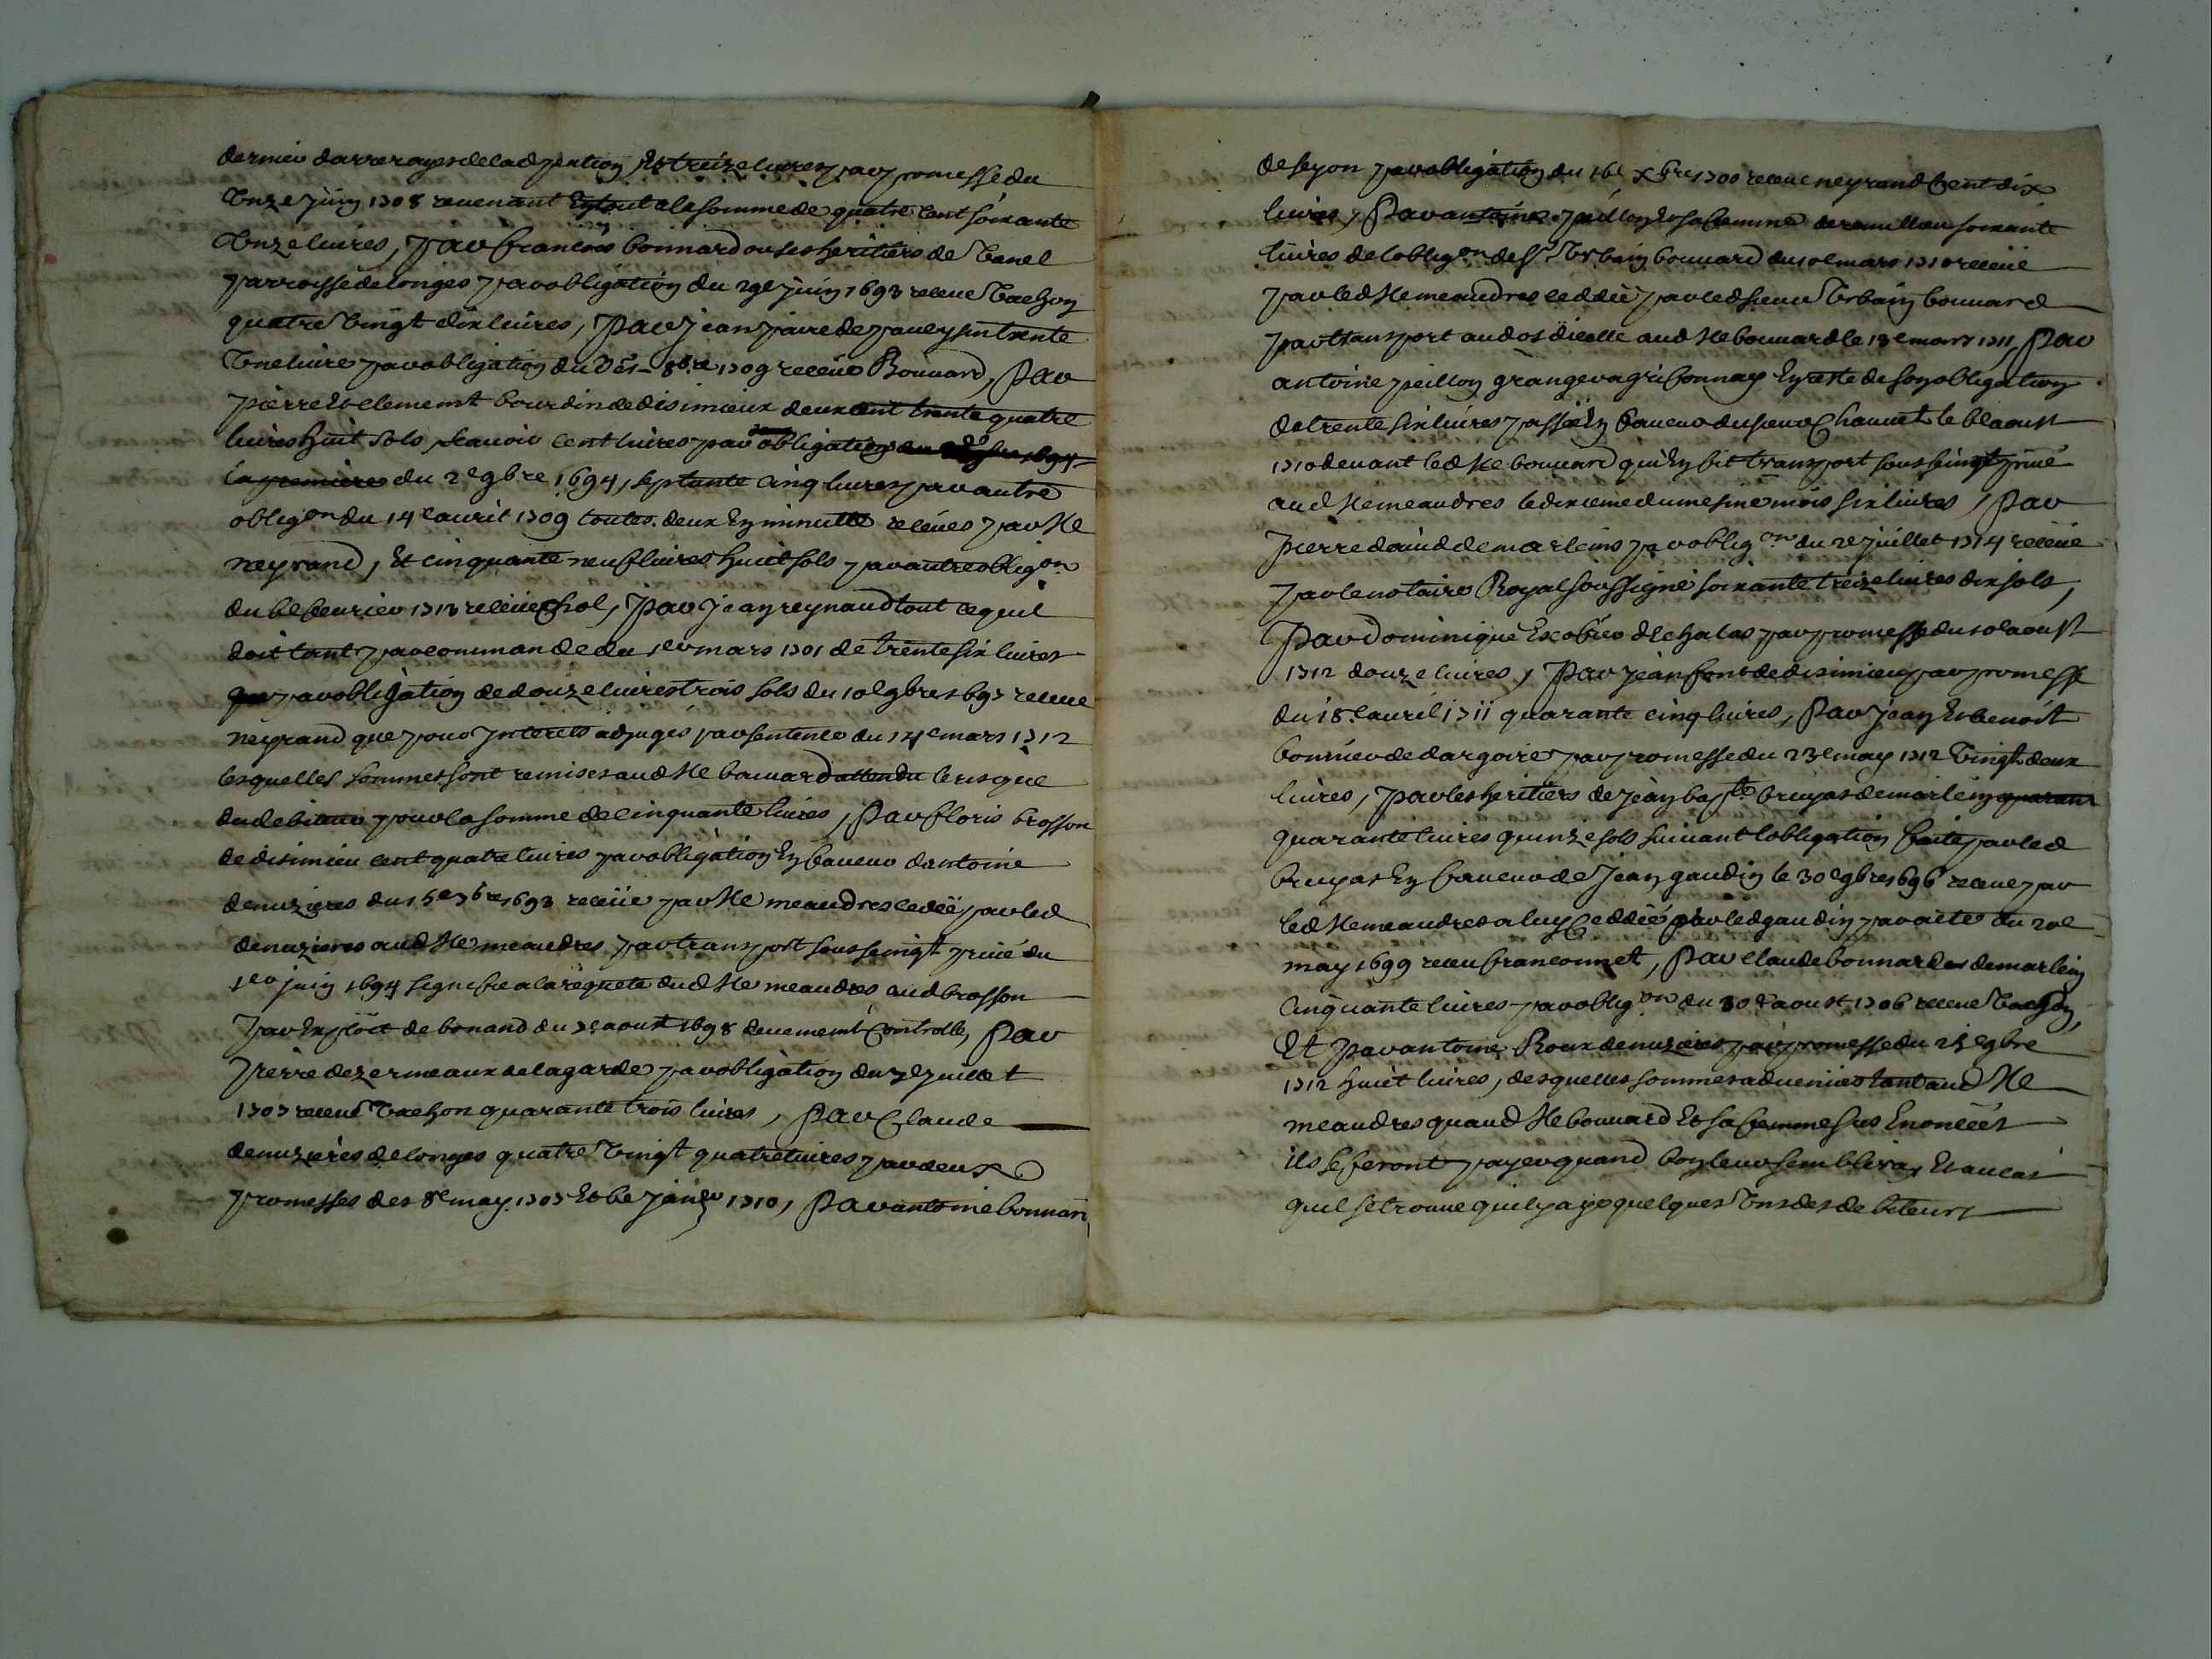 dernier darrerages de lad pention, Et treize livres par promesse du
Unze juin 1708 revenant En tout a la somme de quatre cent soixante
Unze livres, Par francois bonnard ou ses heritiers de Tanel
parroisse de longes par obligation du 29e juin 1693 receue Vachon
quatre Vingt dix livres, Par jean paire de paveysin trente
Une livre par obligation du 8bre 1709 receüe Bonnard, Par
pierre Et clement bourdin de disimieux deux cent trente quatre
livres huit sols, scavoir cent livres par obligation
la premiere du 2e 9bre 1694, septante cinq livres par autre
obligon du 14e avril 1709 toutes deux En minutte receues par Me
neyrand, Et cinquante neuf livres huict sols par autre obligon
du 6e fevrier 1713 receüe Chol, Par Jean reynaud tout ce quil
doit tant par commande du 1er mars 1701 de trente six livres
que par obligation de douze livres trois sols du 10e 9bre 1697 receue
neyrand que pour Interets adjugés par sentence du 14e mars 1712
lesquelles sommes sont remises aud Me bonnard attendu le risque
du debiteur pour la somme de cinquante livres, Par floris brosson
de disimieu cent quatre livres par obligation En faveur dantoine
denuzieres du 15e 7bre 1693 receüe par Me meandres cedéé par led
denuzieres aud Me meandres par transport sous seingt privé du
1er juin 1694 signifie a la requete dud Me meandres aud brosson
Par Exploit de bonand du aoust 1698 deuement Controlle, Par
Pierre dezermeaux de la garde par obligation du juillet
1707 receue Vachon quarante trois livres, Par Claude
denuzières de longes quatre Vingt quatre livres par deux
promesses des 8e may 1707 Et 6e janer 1710, Par antoine bonnard
de seyon par obligation du 16e Xbre 1700 receue neyrand Cent dix
livres, Par antoine peillon Et sa femme de remillieu soixante
livres de lobligon de Sr Urbain bonnard du 10e mars 1710 receüe
par led Me meandres ceddéé par led sieur Urbain bonnard
par transport au dos dicelle aud Me bonnard le 13e mars 1711, Par
antoine peillon granger a gribonnay En reste de son obligation
de trente six livres passéé En faveur du sieur Chauvet le 6e aoust
1710 devant led Me bonnard qui En fit transport sous seingt privé
aud Me meandres le dixieme du mesme mois six livres, Par
pierre david de marleins par obligon du 2e juillet 1714 receüe
par le notaire Royal soussigné soixante treize livres dix sols,
Par Dominique Escofier dEchalas par promesse du 10e aoust
1712 douze livres, Par jean font de disimieu par promesse
du 18e avril 1711 quarante cinq livres, Par jean Et benoit
bonnier de dargoire par promesse du 23e may 1712 Vingt deux
livres, Par les heritiers de jean bapte bruyas de marlein quaran
quarante livres quinze sols suivant lobligation faite par led
bruyas En faveur de Jean gaudin le 30e 9bre 1696 receue par
led Me meandres a luy Ceddéé par led gaudin par acte du 20e
may 1699 receu franconnet, Par claude bonnard de marlein
Cinquante livres par obligon du 30e aoust 1706 receue Vachon,
Et Par antoine Roux denuzieres par promesse du 25e 9bre
1712 huict livres, desquelles sommes advenues tant aud Me
meandres quaud Me bonnard Et sa femme sus Enoncéés
ils se feront payer quand bon leur semblera, Et au cas
quil se trouve quil y aye quelques Uns des debiteurs